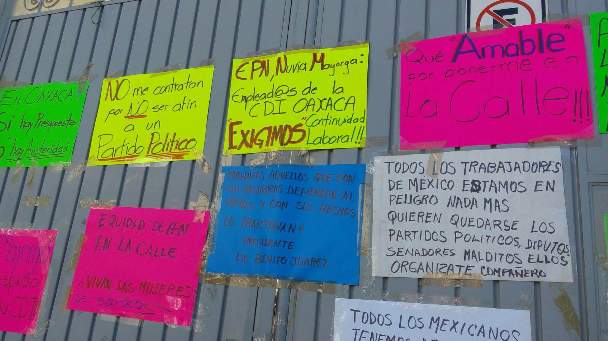 En OAXACA
Sí hay Presupuesto
NO me contratan
por NO ser afin
a un
Partido Político
EPN, Nuvia Mayorga:
Emplead@s de la
CDI OAXACA
EXIGIMOS "Continuidad
Laboral!!!
Qué Amable"
por ponerme en
La Calle!!!
EQUIDAD
EN LA CALLE
VIVAN LAS MUJERES
AQUELLOS QUE CON
PALABRAS
Y CON SUS HECHOS
LO TRAICIONAN
PRESIDENTE
DE BENITO JUAREZ
TODOS LOS TRABAJADORES
DE MÉXICO ESTAMOS EN
PELIGRO NADA MAS
QUIEREN QUEDARSE LOS
PARTIDOS POLITICOS, DIPUTOS
SENADORES MALDITOS ELLOS
ORGANIZATE COMPAÑERO
TODOS LOS MEXICANOS
TENEMOS